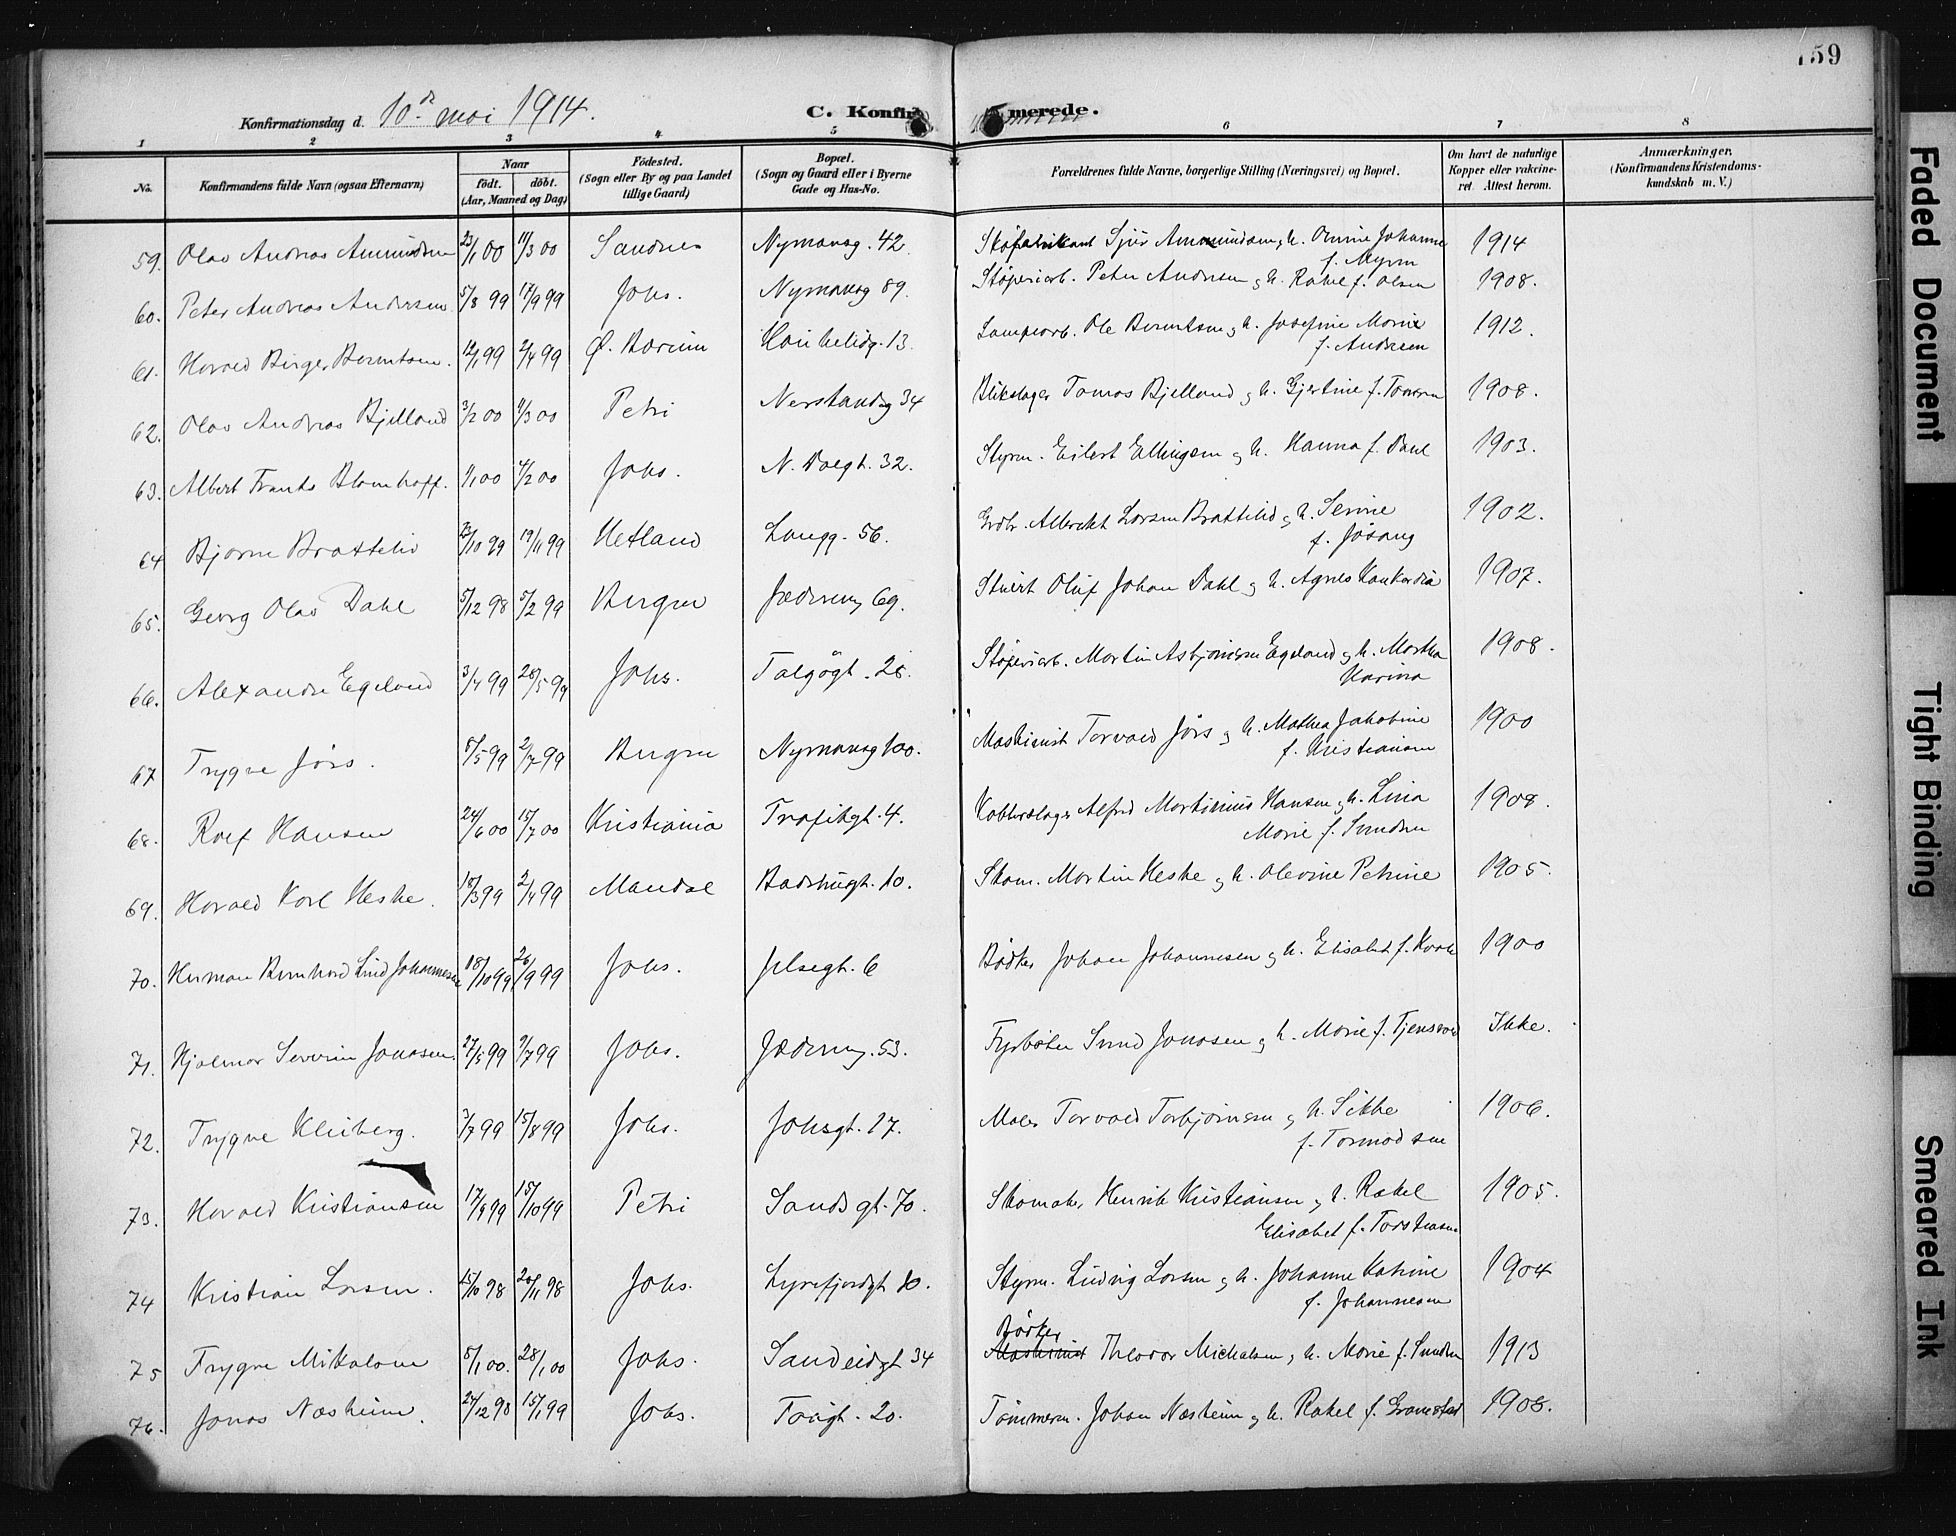 159
Konfirmationsdag d. 10de mai 1914.
C. Konfirmerede.
1 2 3 4 5 6 7 8
No. Konfirmandens fulde Navn (ogsaa Efternavn) Naar født. døbt. (Aar, Maaned og Dag) Födested. (Sogn eller By og paa Landet tillige Gaard) Bopæl. (Sogn og Gaard eller i Byerne Gade og Hus-No. Forældrenes fulde Navne, borgerlige Stilling (Næringsvei) og Bopæl. Om havt de naturlige Kopper eller vakcineret. Attest herom. Anmærkninger. (Konfirmandens Kristendomskundskab m. V.)
59. Olav Andreas Amundsen 23/1 00 11/3 00 Sandnes Nymansg. 42 Skofabrikant Sjur Ammundsen, h. Johanne f. Myren 1914
60. Peter Andreas Andersen 5/8 99 17/9 99 Johs. Nymansg 89. Støperiarb. Peter Andersen og h. Rakel f. Olsen 1908.
61. Harald Birger Berntsen. 12/1 99 2/4 99 Ø. Bærum 13. Ole Berntsen og h. Josefine Marie f. Andresen 1912.
62. Olav Andreas Bjelland 3/2 00 11/3 00 Petri Nerstrandsg 34 Blikslager Tomas Bjelland og h. Gjertine f. 1908.
63. Albert Frants Blomhoff. 1/1 00 4/2 00 Johs. N. Dalgt. 32. Styrm. Eilert Ellingsen og h. Hanna f. Dahl 1903.
64 Bjarne Brattelid 23/10 99 19/11 99 Hetland Langg. 56. Grdbr. Albrekt Larsen Brattelid og h. Serine f. Jøsang 1902.
65. Georg Olav Dahl 5/12 98 5/2 99 Bergen Jæderveg 69. Stuert Oluf Johan Dahl og h. Agnes Konkordia 1907.
66. Alexander Egeland 3/4 99 28/5 99 Johs. Talgøgt. 28. Støperiarb. Martin Asbjørnsen Egeland og h. Martha Karina 1908.
67 Trygve Jørs. 5/5 99 2/7 99 Bergen Nymansg 100. Maskinist Torvald Jørs og h. Mathea Jakobine f. Kristiansen 1900
68. Rolf Hansen 24/6 00 15/7 00 Kristiania Trafikgt. 4. Kobberslager Alfred Martinius Hansen og h. Lina Marie f. 1908.
69. Harald Karl Heske. 18/3 99 2/4 99 Mandal Badehusgt. 10. Skom. Martin Heske og h. Olevine Petrine 1905.
70. Herman Bernhard Lind Johannesen 18/10 99 26/9 99 Johs. Jelsegt. 6 Bødker Johan Johannesen og h. Elisabet f. 1900
71. Hjalmar Severin Jonasen. 27/5 99 9/7 99 Johs. Jæderveg. 53. Fyrbøter Svend Jonasen og h. Marie f. Tjensvold Ikke.
72. Trygve Kleiberg. 3/7 99 15/8 99 Johs. Johsgt. 17. Maler Torvald Torbjørnsen og h. Sikke f. Tormodsen 1906.
73. Harald Kristiansen 17/9 99 15/10 99 Petri Sandsgt. 70. Skomaker Henrik Kristiansen og h. Rakel Elisabet f. Torstensen 1905.
74 Kristian Larsen. 15/10 98 20/11 98 Johs. Lysefjordgt 10. Styrm. Ludvig Larsen og h. Johanne Katrine f. Johannesen 1904
75 Trygve Mikalsen 5/1 00. 28/1 00 Johs. Sandeidgt 34 Bødker Maskinist Theodor Michalsen, h. Marie f. 1913
76. Jonas Næsheim. 27/12 98 15/1 99 Johs. 20. Tømmerm. Johan Næsheim og h. Rakel f. Gramstad 1908.
Faded Document
Tight Binding
Smeared Ink